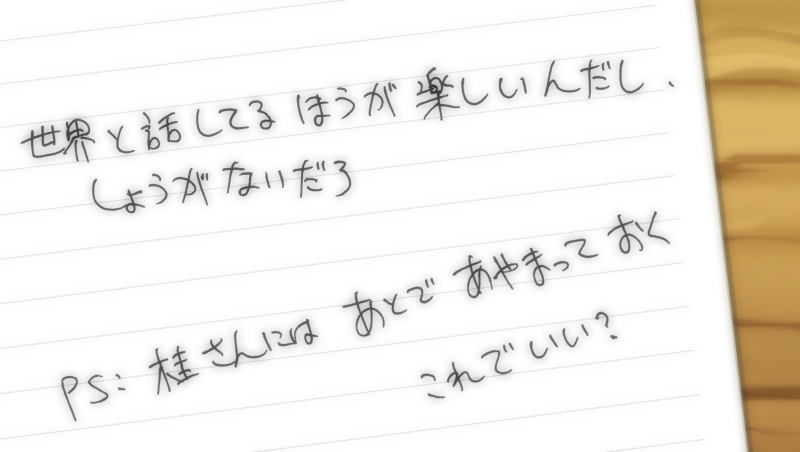 世界と話してるほうが楽しいんだし、
しょうがないだろ
PS: 桂さんには あとで あやまっておく
これでいい?